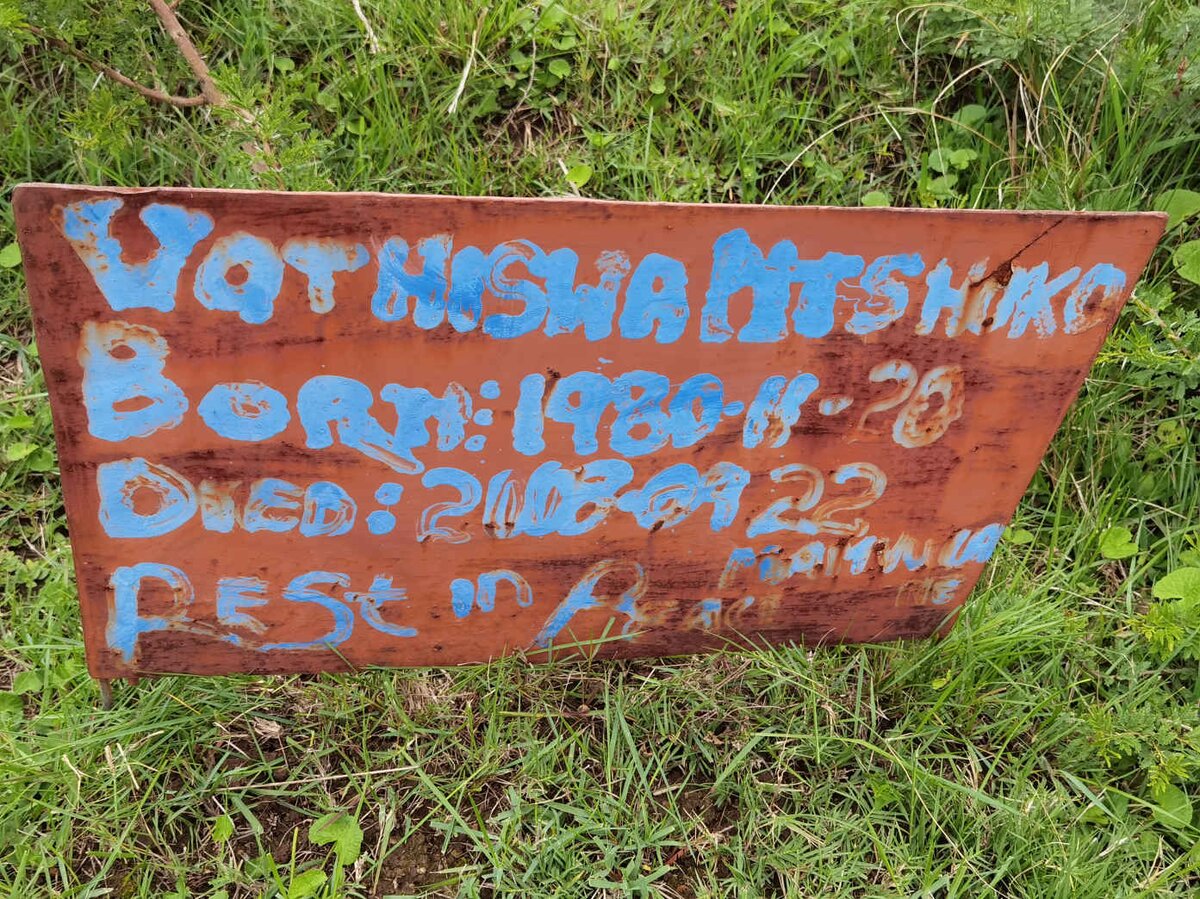 VOTHIISWA MTSHIKO
BORN: 1980-11-20
DIED: 2008-09 22
REST in PEACE